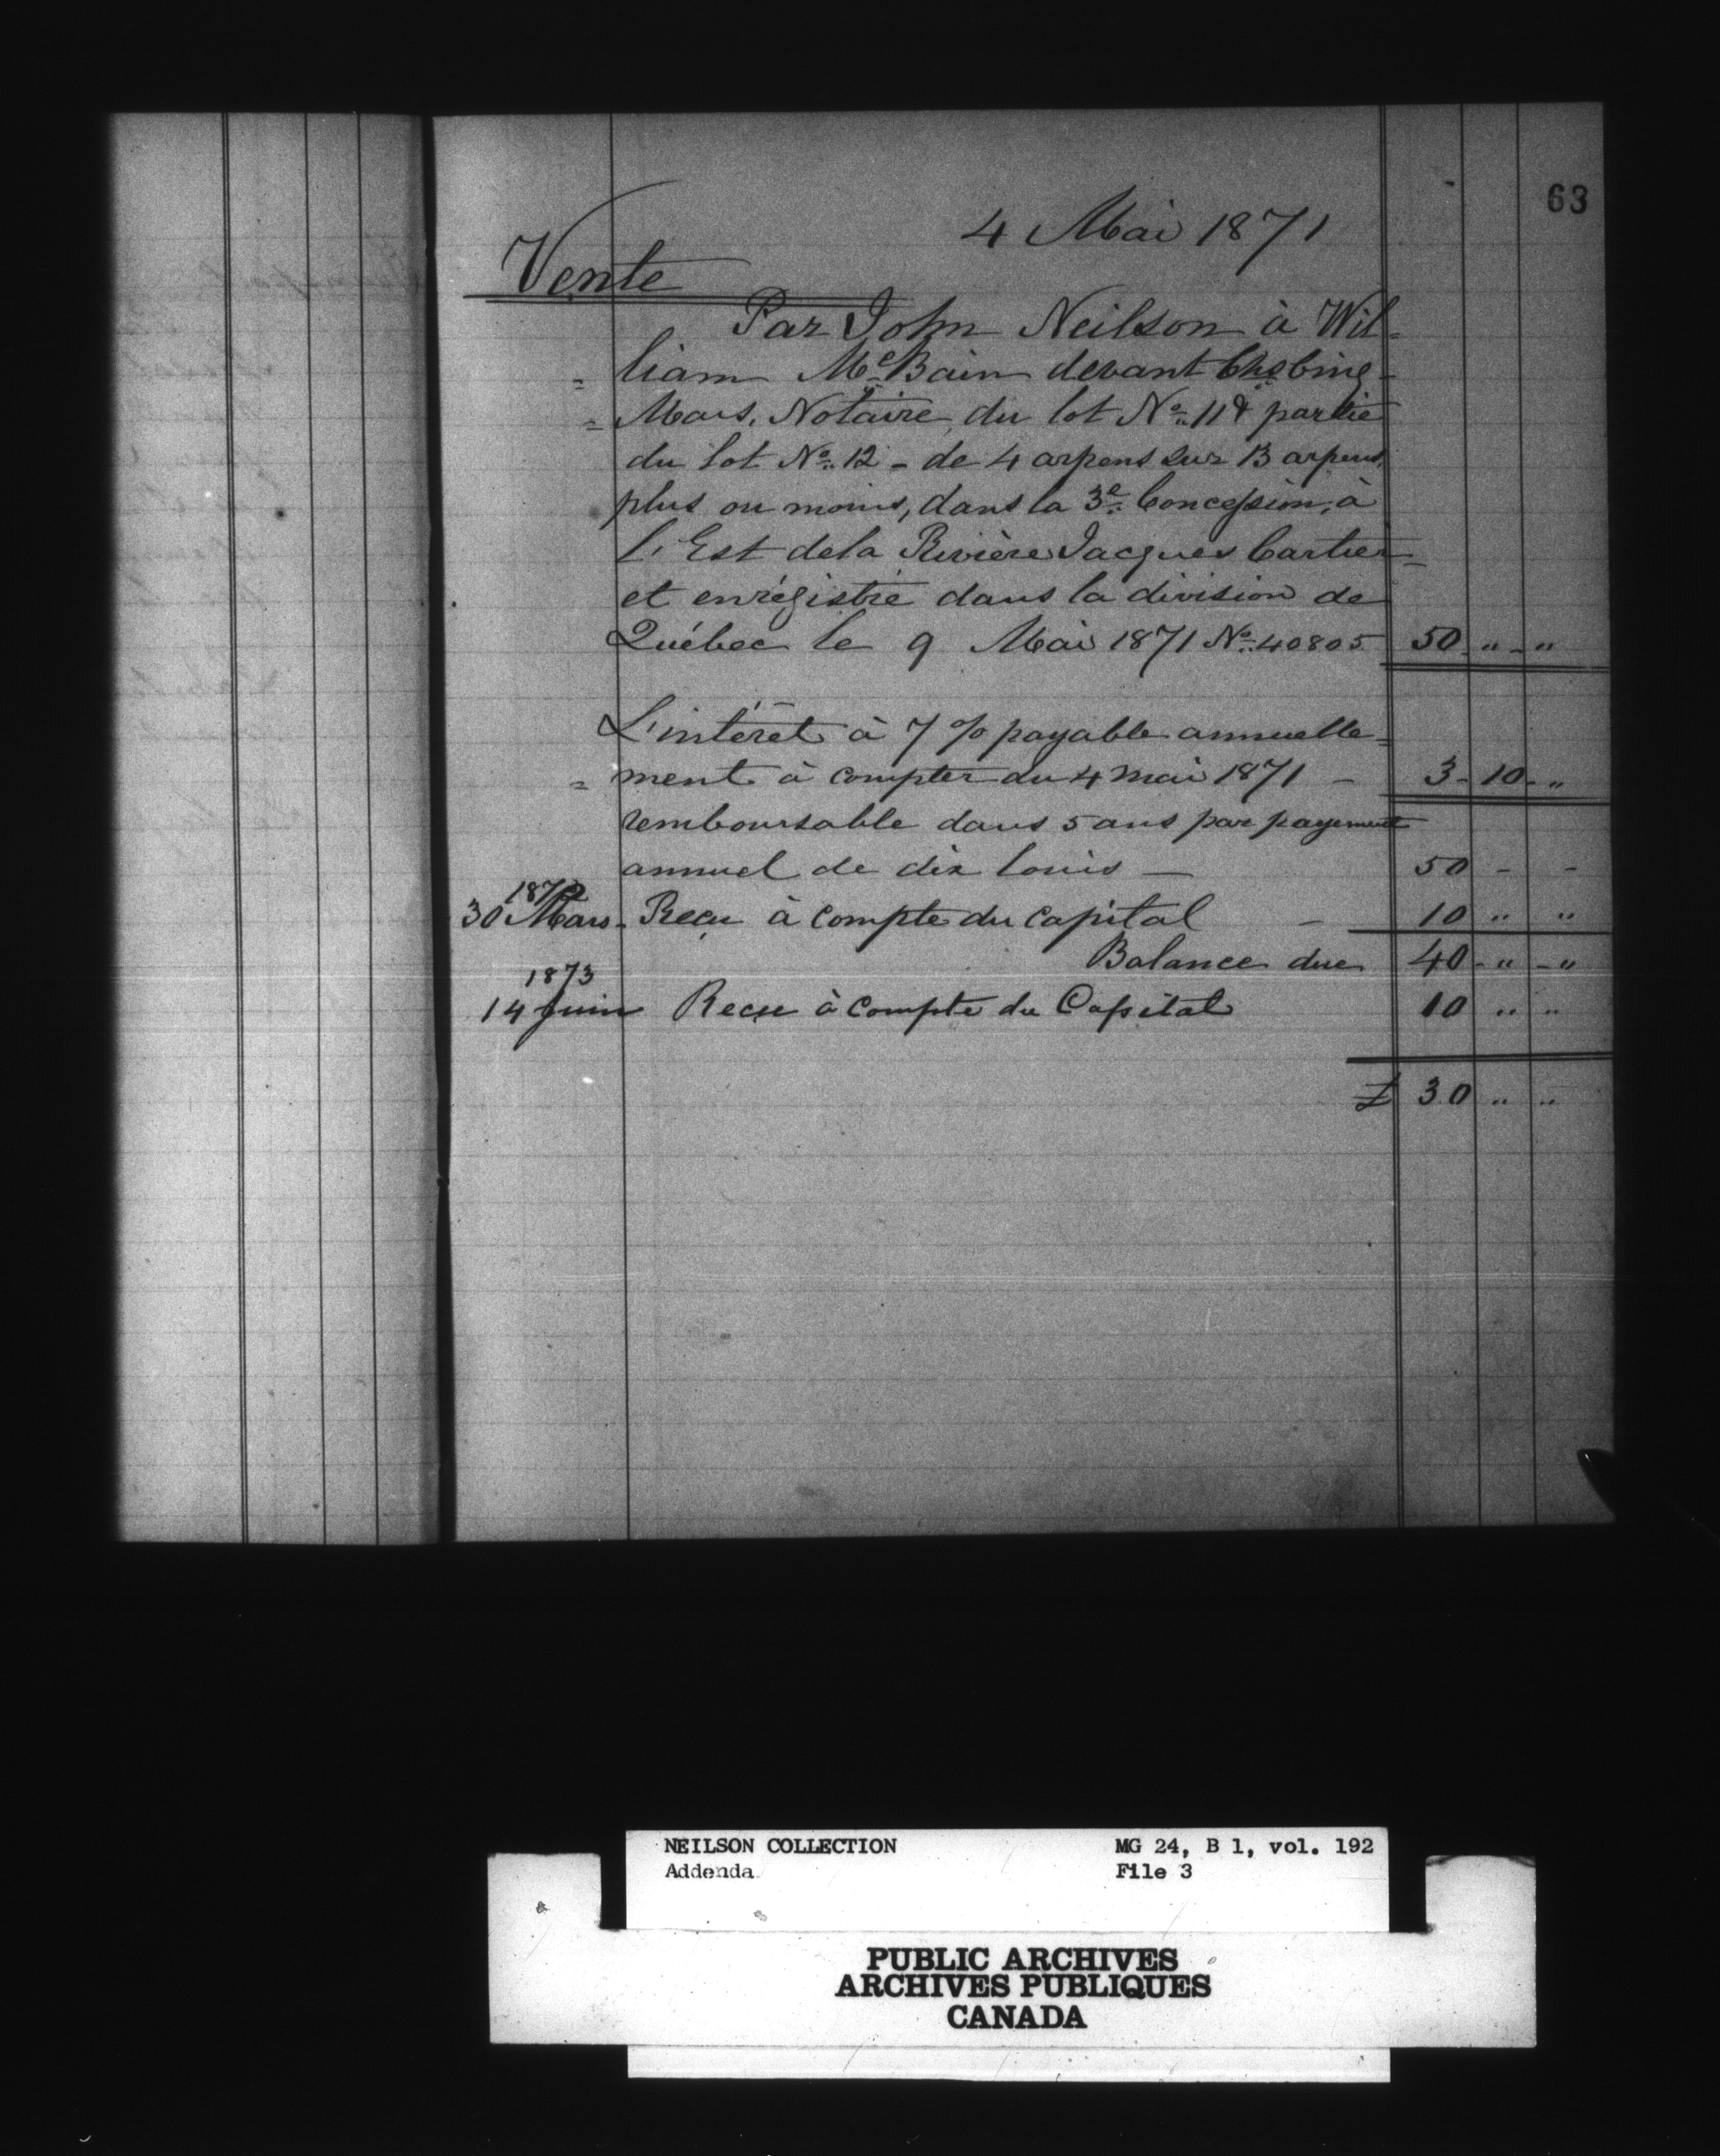 63
4 Mai 1871
Vente
Par John Neilson à Wil-
= liam McBain devant Chs Cinq-
= Mars, Notaire, du lot No. 11 & partie
du lot No. 12 - de 4 arpens sur 13 arpens,
plus ou moins, dans la 3e. Concession, à
l'Est de la Rivière Jacques Cartier
et enrégistré dans la division de
Québec le 9 Mai 1871 No. 40805 50 " - "
L'intérêt à 7 % payable annuelle=
= ment à compter du 4 mai 1871 - 3 - 10 - "
remboursable dans 5 ans par payement
annuel de dix louis — 50 - -
1872
30 Mars. Reçu à compte du capital - 10 " "
Balance due 40 - " - "
1873
14 Juin Reçu à Compte du Capital 10 " "
£ 30 " "
NEILSON COLLECTION MG 24, B 1, vol. 192
Addenda File 3
PUBLIC ARCHIVES
ARCHIVES PUBLIQUES
CANADA